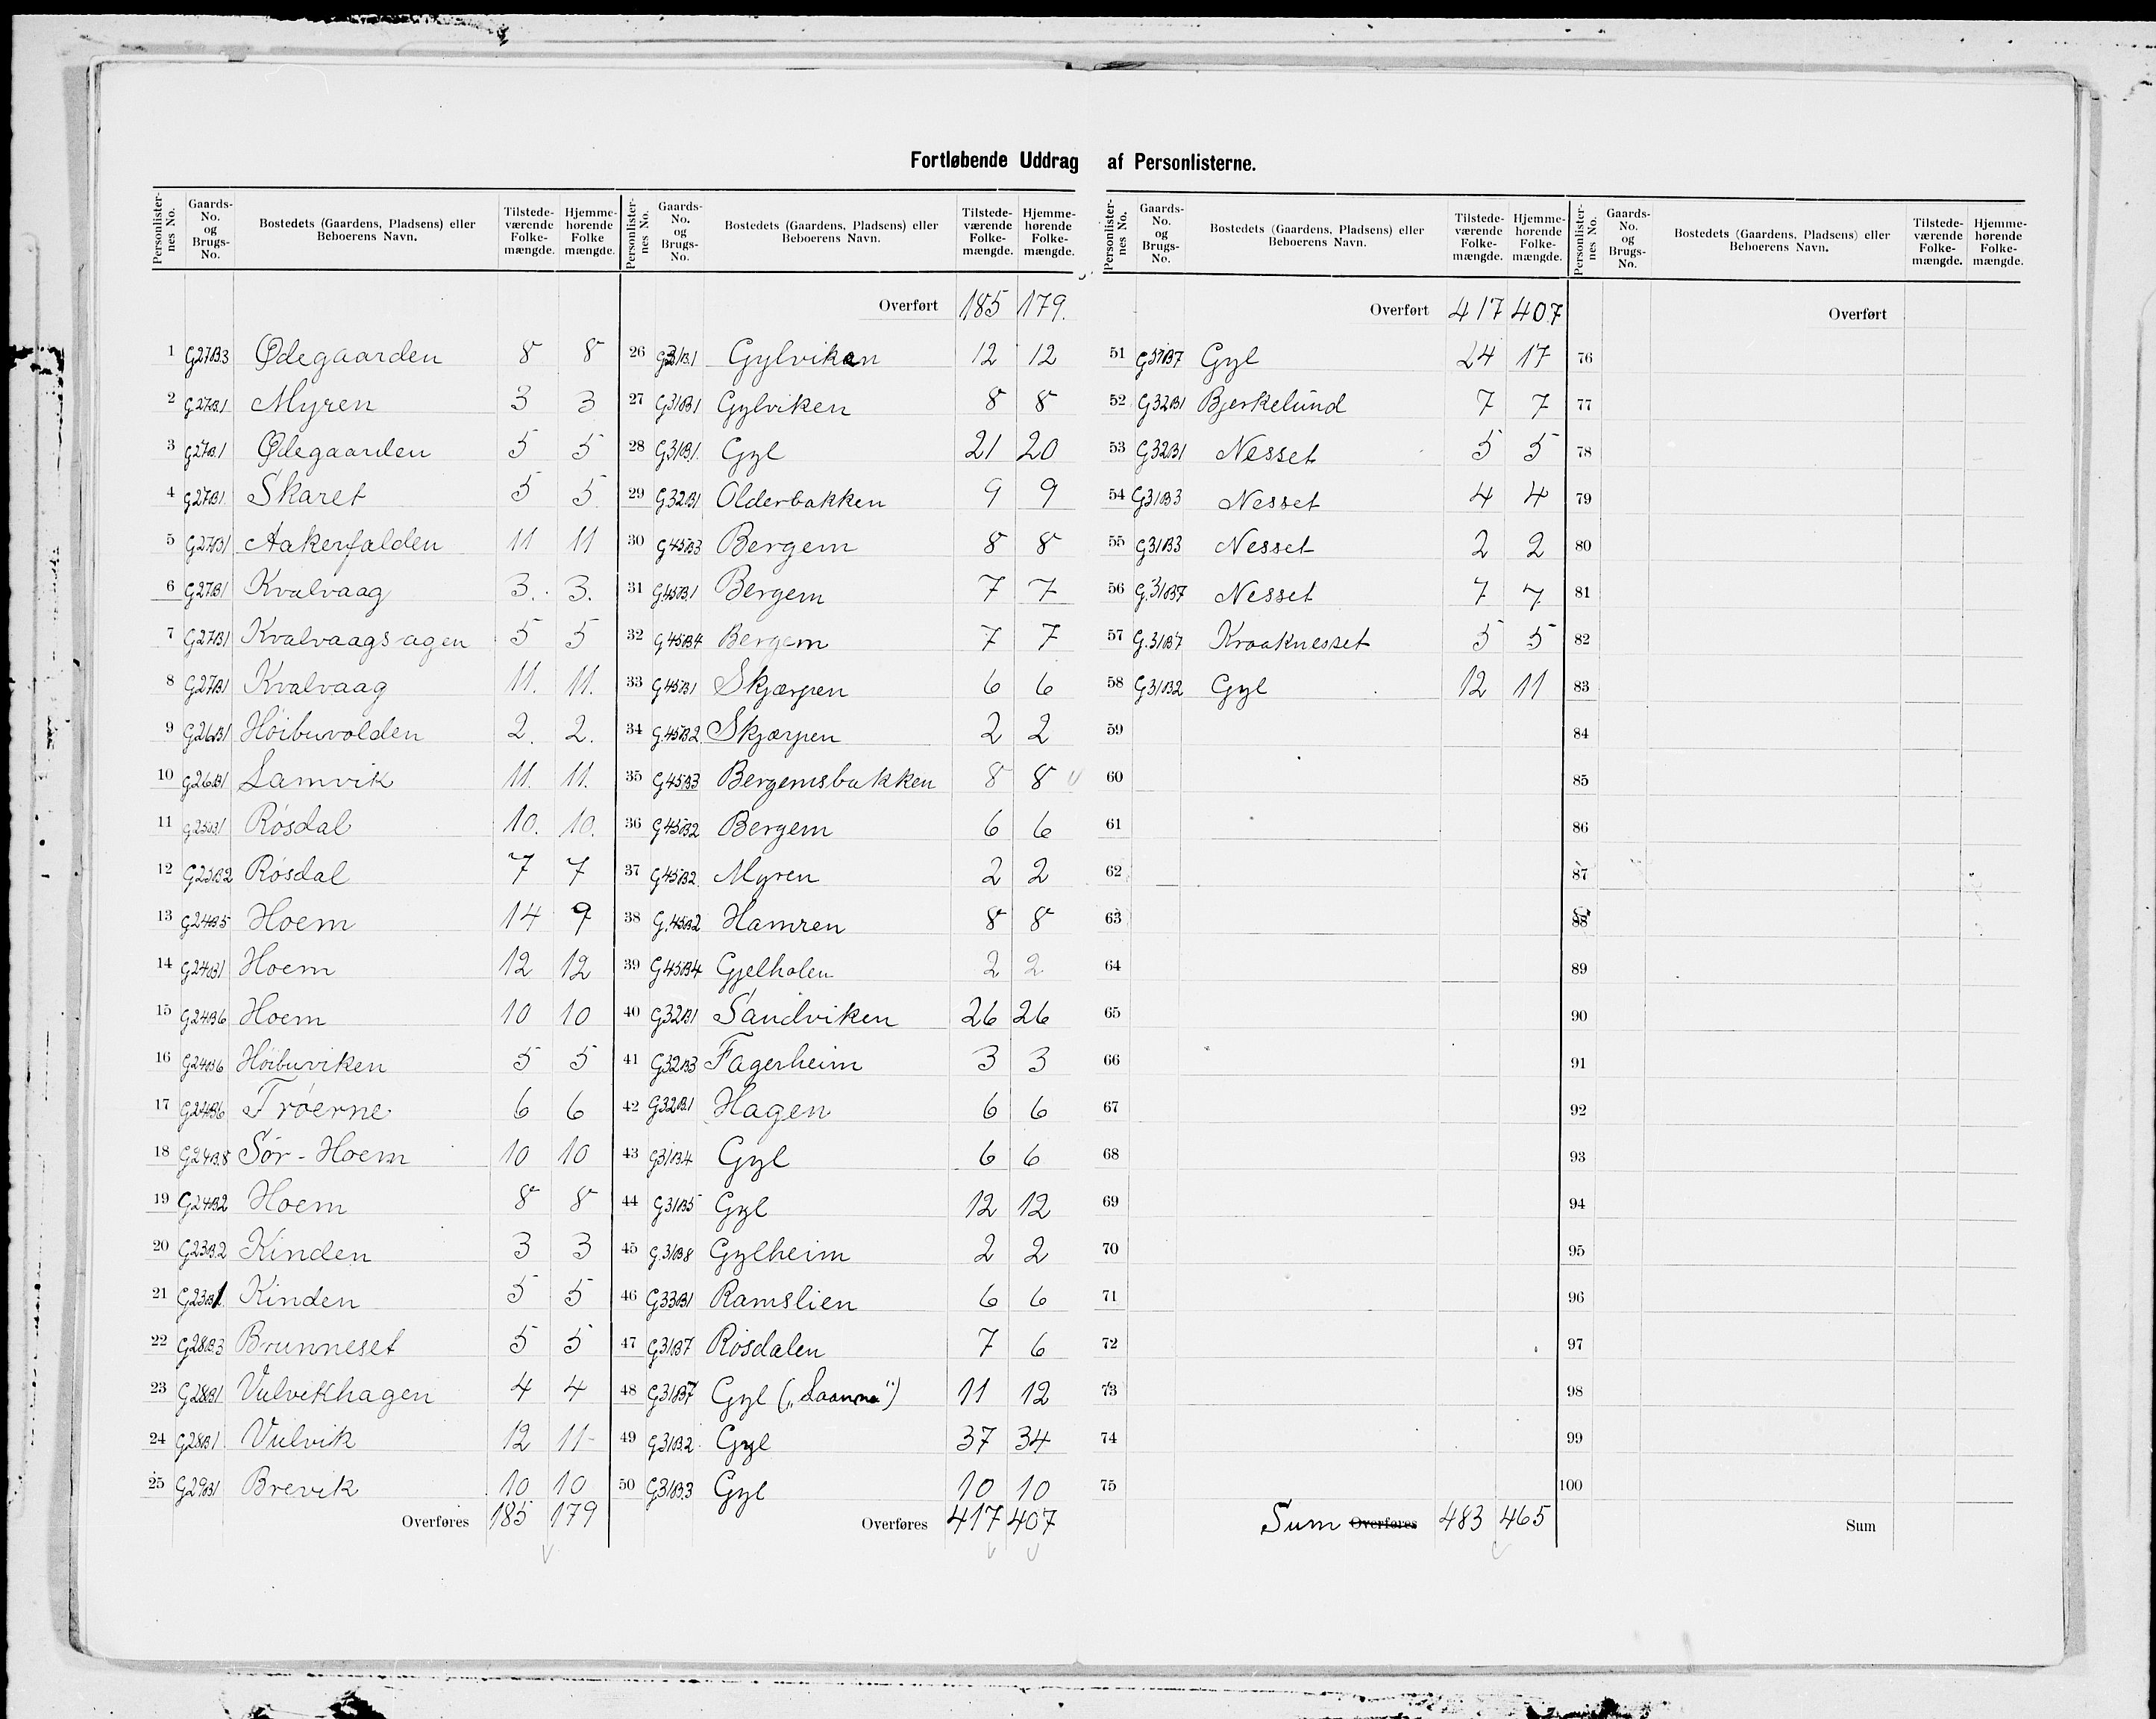 Fortløbende Uddrag af Personlisterne.
Personlister-nes No. | Gaards-No. og Brugs-No. | Bostedets (Gaardens, Pladsens) eller Beboerens Navn. | Tilstede-værende Folke-mængde. | Hjemme-hørende Folke mængde.
1 G27B3 Ødegaarden 8 8
2 G27B1 Myren 3 3
3 G27B1 Ødegaarden 5 5
4 G27B1 Skaret 5 5
5 G27B1 Aakerfalden 11 11
6 G27B1 Kvalvaag 3. 3.
7 G27B1 Kvalvaagsagen 5 5
8 G27B1 Kvalvaag 11. 11.
9 G26B1 Høibuvolden 2. 2.
10 G26B1 Lamvik 11. 11.
11 G25B1 Røsdal 10. 10.
12 G25B2 Røsdal 7 7
13 G24B5 Hoem 14 9
14 G24B1 Hoem 12 12
15 G24B6 Hoem 10 10
16 G24B6 Høibuviken 5 5
17 G24B6 Trøerne 6 6
18 G24B.8 Sør-Hoem 10 10
19 G24B2 Hoem 8 8
20 G23B.2 Kinden 3 3
21 G23B1 Kinden 5 5
22 G28B.3 Brunneset 5 5
23 G28B1 Vulvikhagen 4 4
24 G28B1 Vulvik 12 11
25 G29B1 Brevik 10 10
Overføres 185 179
Personlister-nes No. | Gaards-No. og Brugs-No. | Bostedets (Gaardens, Pladsens) eller Beboerens Navn. | Tilstede-værende Folke-mængde. | Hjemme-hørende Folke-mængde.
Overført 185 179.
26 G31B.1 Gylviken 12 12
27 G31B1 Gylviken 8 8
28 G31B1. Gyl 21 20
29 G32B1 Olderbakken 9 9
30 G45B3 Bergem 8 8
31 G45B.1 Bergem 7 7
32 G45B4 Bergem 7 7
33 G45B1 Skjærpen 6 6
34 G.45B2. Skjærpen 2 2
35 G45B3 Bergemsbakken 8 8
36 G45B2 Bergem 6 6
37 G45B2. Myren 2 2
38 G.45B2 Hamren 8 8
39 G45B4 Gjelholen 2 2
40 G32B1 Sandviken 26 26
41 G32B3 Fagerheim 3 3
42 G32B.1 Hagen 6 6
43 G31B.4 Gyl 6 6
44 G31B5 Gyl 12 12
45 G.31B8 Gylheim 2 2
46 G33B1 Ramslien 6 6
47 G31B7 Røsdalen 7 6
48 G31B7 Gyl („Laanna") 11 12
49 G31B.2. Gyl 37 34
50 G31B.3 Gyl 10 10
Overføres 417 407
Personlister-nes No. | Gaards-No. og Brugs-No. | Bostedets (Gaardens, Pladsens) eller Beboerens Navn. | Tilstede-værende Folke-mængde. | Hjemme-hørende Folke-mængde.
Overført 417 407
51 G31B7 Gyl 24 17
52 G32B1 Bjerkelund 7 7
53 G32B1 Nesset 5 5
54 G31B3 Nesset 4 4
55 G31B3 Nesset 2 2
56 G.31B7 Nesset 7 7
57 G.31B7 Kraaknesset 5 5
58 G31B2 Gyl 12 11
59
60
61
62
63
64
65
66
67
68
69
70
71
72
73
74
75
Sum Overføres 483 465
Personlister-nes No. | Gaards-No. og Brugs-No. | Bostedets (Gaardens, Pladsens) eller Beboerens Navn. | Tilstede-værende Folke-mængde. | Hjemme-hørende Folke-mængde.
Overført
76
77
78
79
80
81
82
83
84
85
86
87
88
89
90
91
92
93
94
95
96
97
98
99
100
Sum